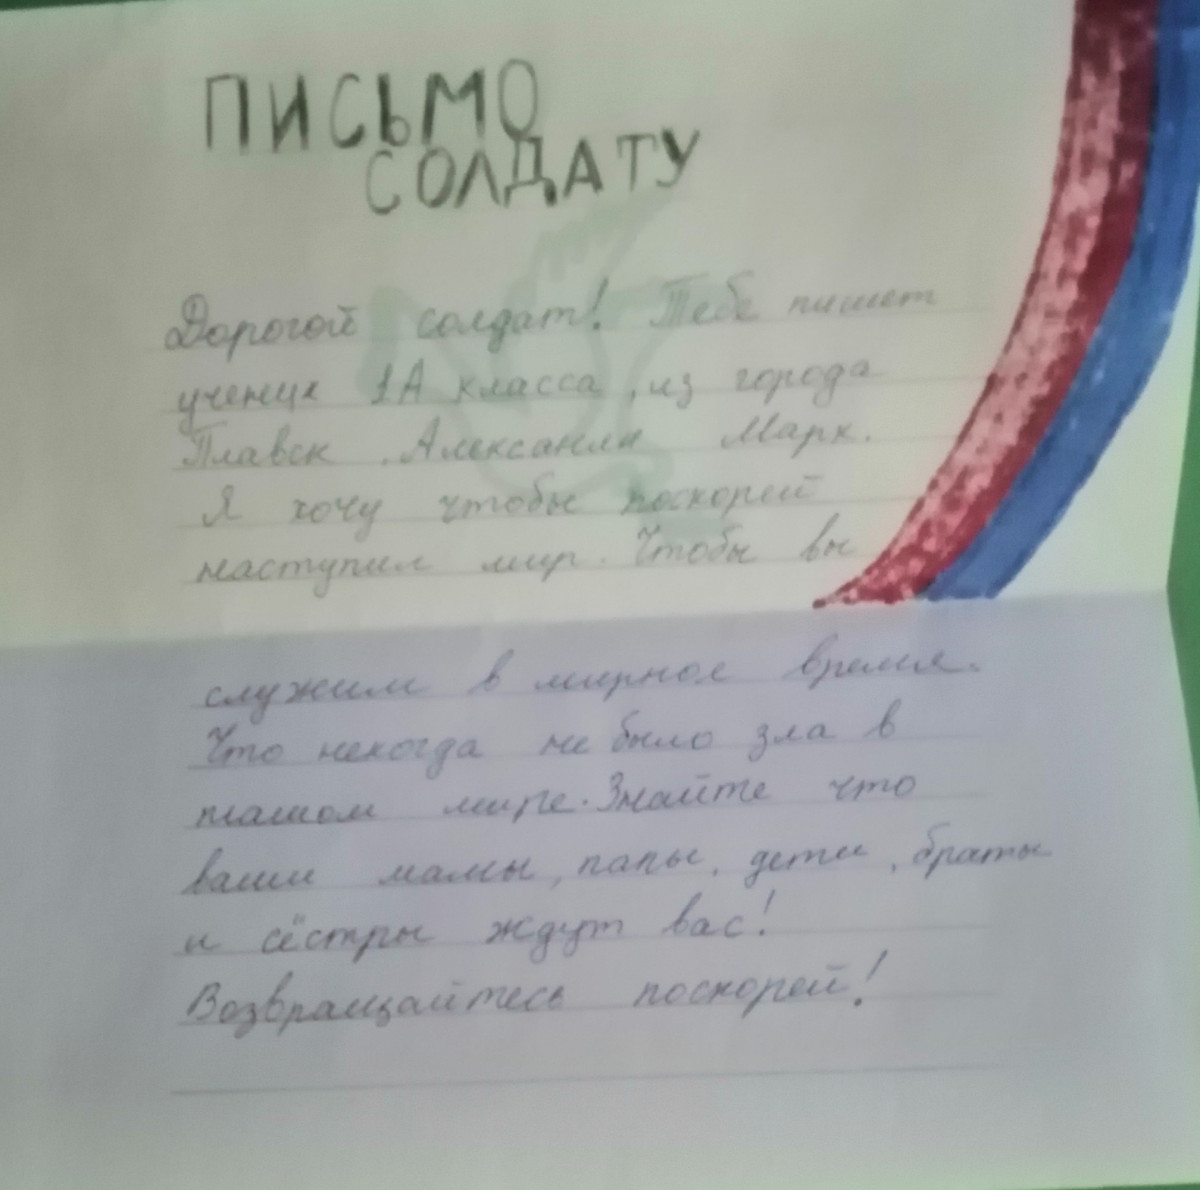 ПИСЬМО
СОЛДАТУ
Дорогой солдат! Тебе пишет
ученик 1А класса, из города
Плавск. Алексанли Марк.
Я хочу чтобы поскорей
наступил мир. Чтобы вы
служили в мирное время.
Что некогда не было зла в
нашом мире. Знайте что
ваши мамы, папы, дети, браты
и сёстры ждут вас!
Возвращайтесь поскорей!